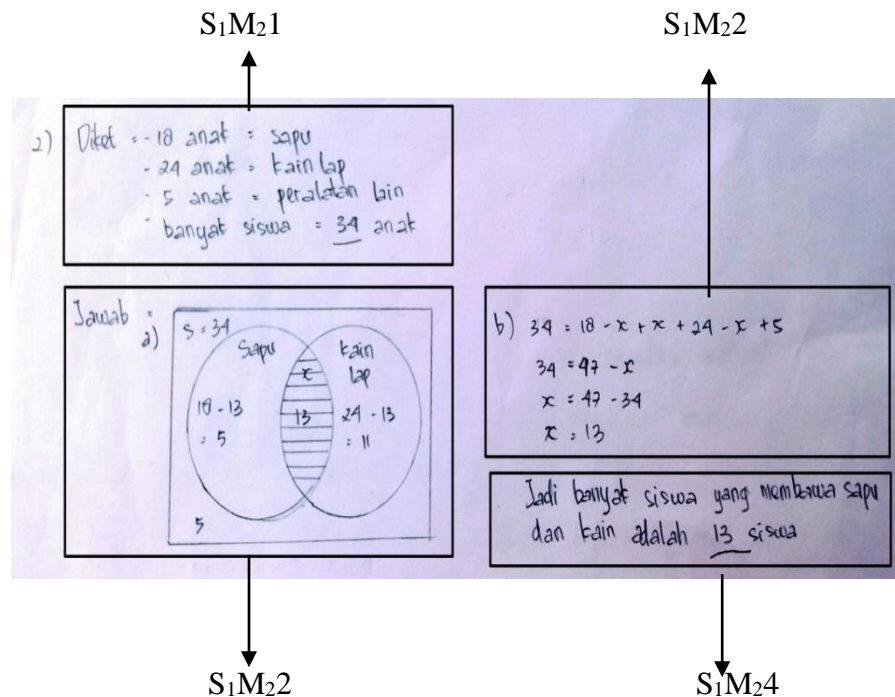 S₁M₂1 S₁M₂2
2) Diket = - 18 anak = sapu
- 24 anak = kain lap
- 5 anak = peralatan lain
- banyak siswa = 34 anak
Jawab =
a) S = 34
Sapu kain
lap
x
18 - 13 13 24 - 13
= 5 = 11
5
b) 34 = 18 - x + x + 24 - x + 5
34 = 47 - x
x = 47 - 34
x = 13
Jadi banyak siswa yang membawa sapu
dan kain adalah 13 siswa
S₁M₂2 S₁M₂4